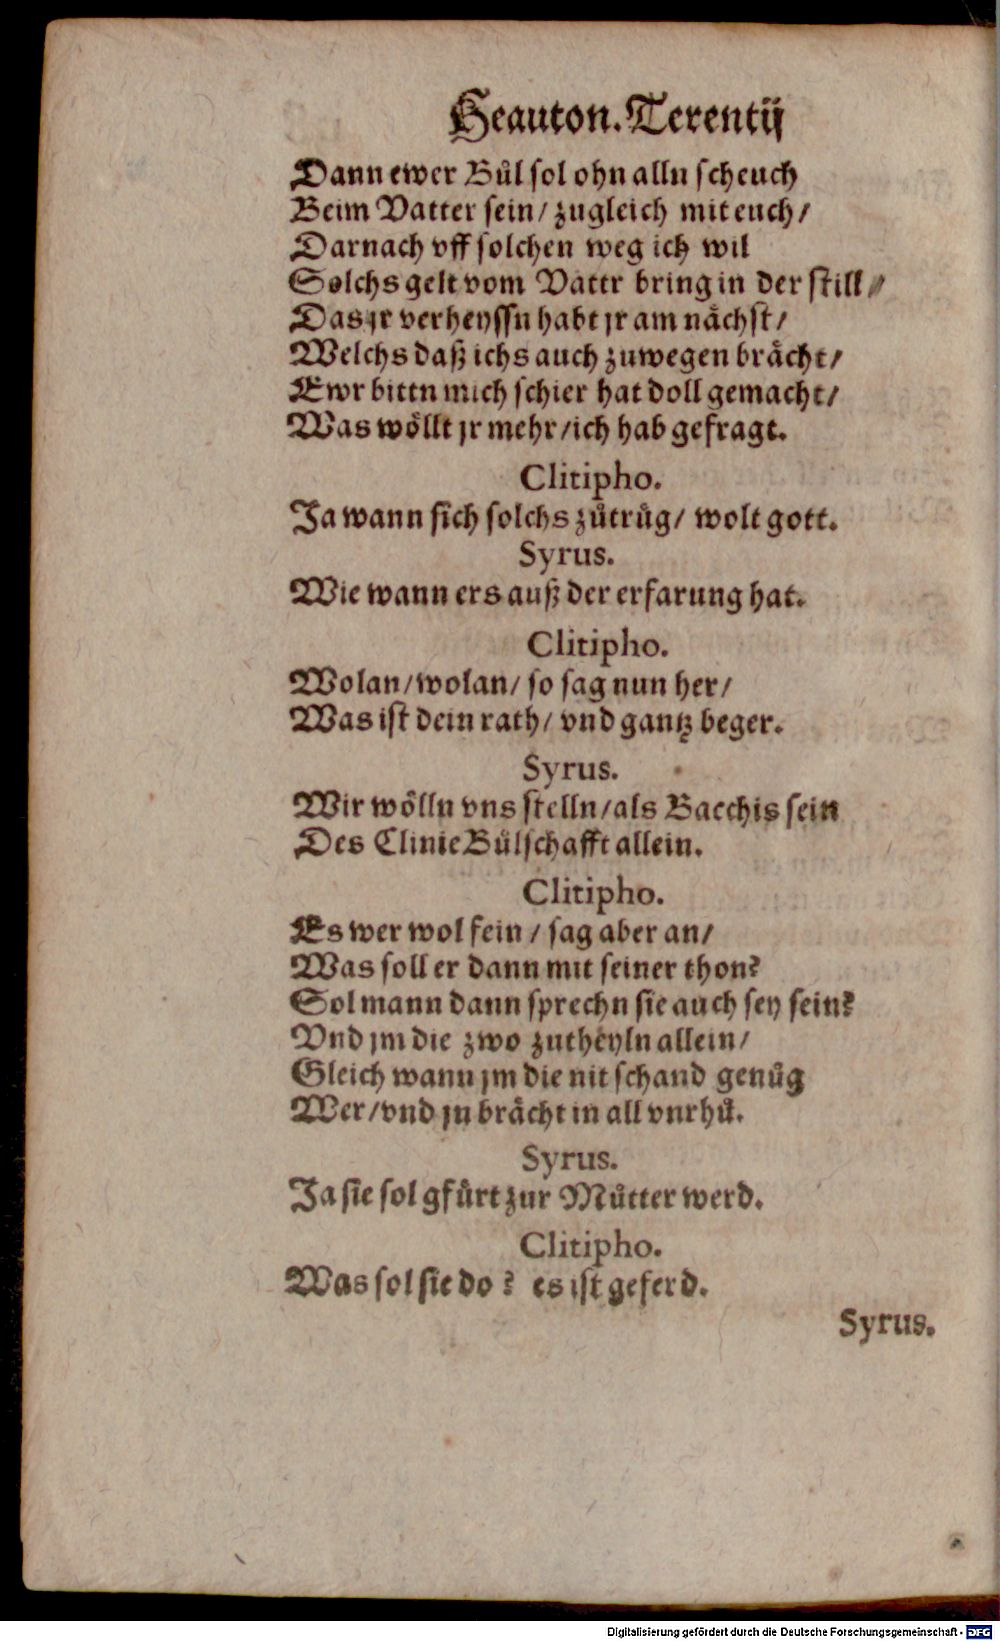 Heauton. Terentij
Dann ewer Bůl sol ohn alln scheuch
Beim Vatter sein/ zugleich mit euch/
Darnach vff solchen weg ich wil
Solchs gelt vom Vattr bring in der still/
Das jr verheyssn habt jr am nåchst/
Welchs daß ichs auch zuwegen bråcht/
Ewr bittn mich schier hat doll gemacht/
Was wôllt jr mehr/ich hab gefragt.
Clitipho.
Ja wann sich solchs zůtrůg/ wolt gott.
Syrus.
Wie wann ers auß der erfarung hat.
Clitipho.
Wolan/wolan/ so sag nun her/
Was ist dein rath/ vnd gantz beger.
Syrus.
Wir wôlln vns stelln/als Bacchis sein
Des Clinie Bůlschafft allein.
Clitipho.
Es wer wol fein/ sag aber an/
Was soll er dann mit seiner thon?
Sol mann dann sprechn sie auch sey sein?
Vnd jm die zwo zutheyln allein/
Gleich wann jm die nit schand genůg
Wer/vnd jn bråcht in all vnrhů.
Syrus.
Ja sie sol gfůrt zur Můtter werd.
Clitipho.
Was sol sie do? es ist geferd.
Syrus.
Digitalisierung gefördert durch die Deutsche Forschungsgemeinschaft - DFG